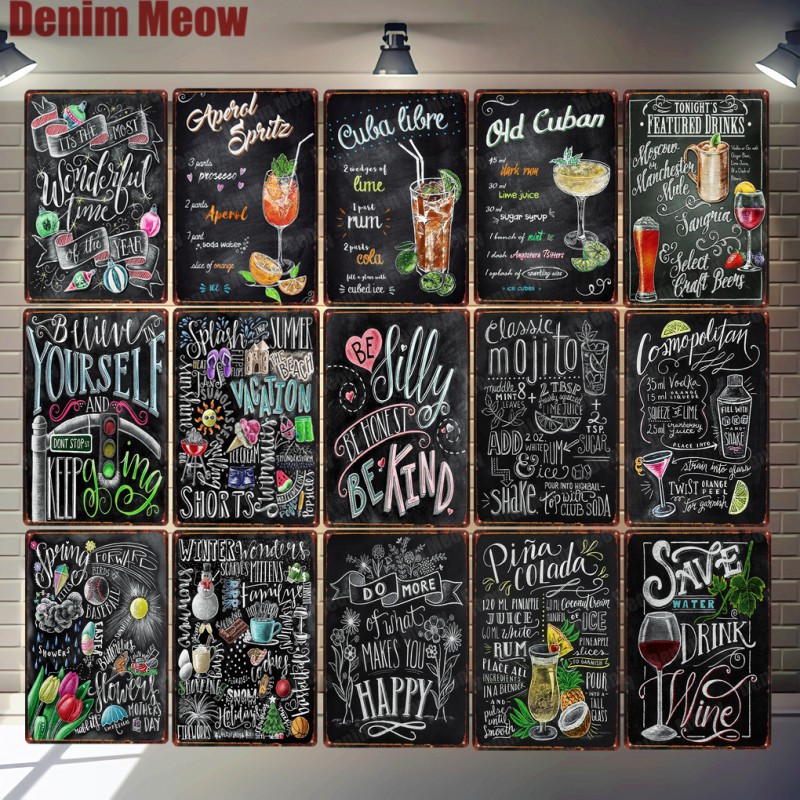 Denim Meow
IT'S THE MOST
Wonderful
time
of the YEAR
Aperol
Spritz
3 parts
prosecco
2 parts
Aperol
1 part
soda water
slice of orange
ICE
Cuba libre
2 wedges of
lime
1 part
rum
2 parts
cola
fill a glass with
cubed ice
Old Cuban
45 ml
dark rum
30 ml
Lime juice
30 ml
sugar syrup
1 bunch of mint
1 dash Angostura Bitters
1 splash of sparkling wine
ICE CUBES
TONIGHT'S
FEATURED DRINKS
Moscow
or
Manchester
Mule
Sangria
& Select
Craft Beers
Believe in
YOURSELF
AND
DON'T STOP ST
KEEP going
Splash SUMMER
BEACH
VACATION
SUNGLASSES
SHORTS
Popsicle
BE Silly
BE HONEST
BE KIND
Classic
mojito
muddle 8
MINT LEAVES
+ 2 TBSP
freshly squeezed
LIME JUICE
+ 2 TBSP SUGAR
ADD 2 OZ
WHITE RUM
& ice
shake
POUR INTO HIGHBALL
top with
CLUB SODA
Cosmopolitan
35 ml Vodka
15 ml ORANGE LIQUEUR
SQUEEZE OF LIME
25 ml cranberry juice
PLACE INTO
FILL WITH
ICE
AND
SHAKE
strain into glass
TWIST ORANGE
PEEL
for garnish
Spring FORWARD
BIRDS
BASEBALL
SHOWERS
EASTER
Flowers
MOTHER'S
DAY
WINTER Wonders
SCARVES MITTENS
Family
SNOWMAN
Cookies
SHOPPING
SNOW
Holiday
Basketball
FIREWORKS
DO MORE
of what
MAKES YOU
HAPPY
Piña
COLADA
120 ML PINEAPPLE
JUICE
60 ML White
RUM
60 ML Coconut cream
ICE
PINEAPPLE
slices
TO GARNISH
PLACE ALL
INGREDIENTS
IN A BLENDER
AND
pulse
until
Smooth
POUR
INTO A
TALL
GLASS
SAVE
WATER
DRINK
Wine